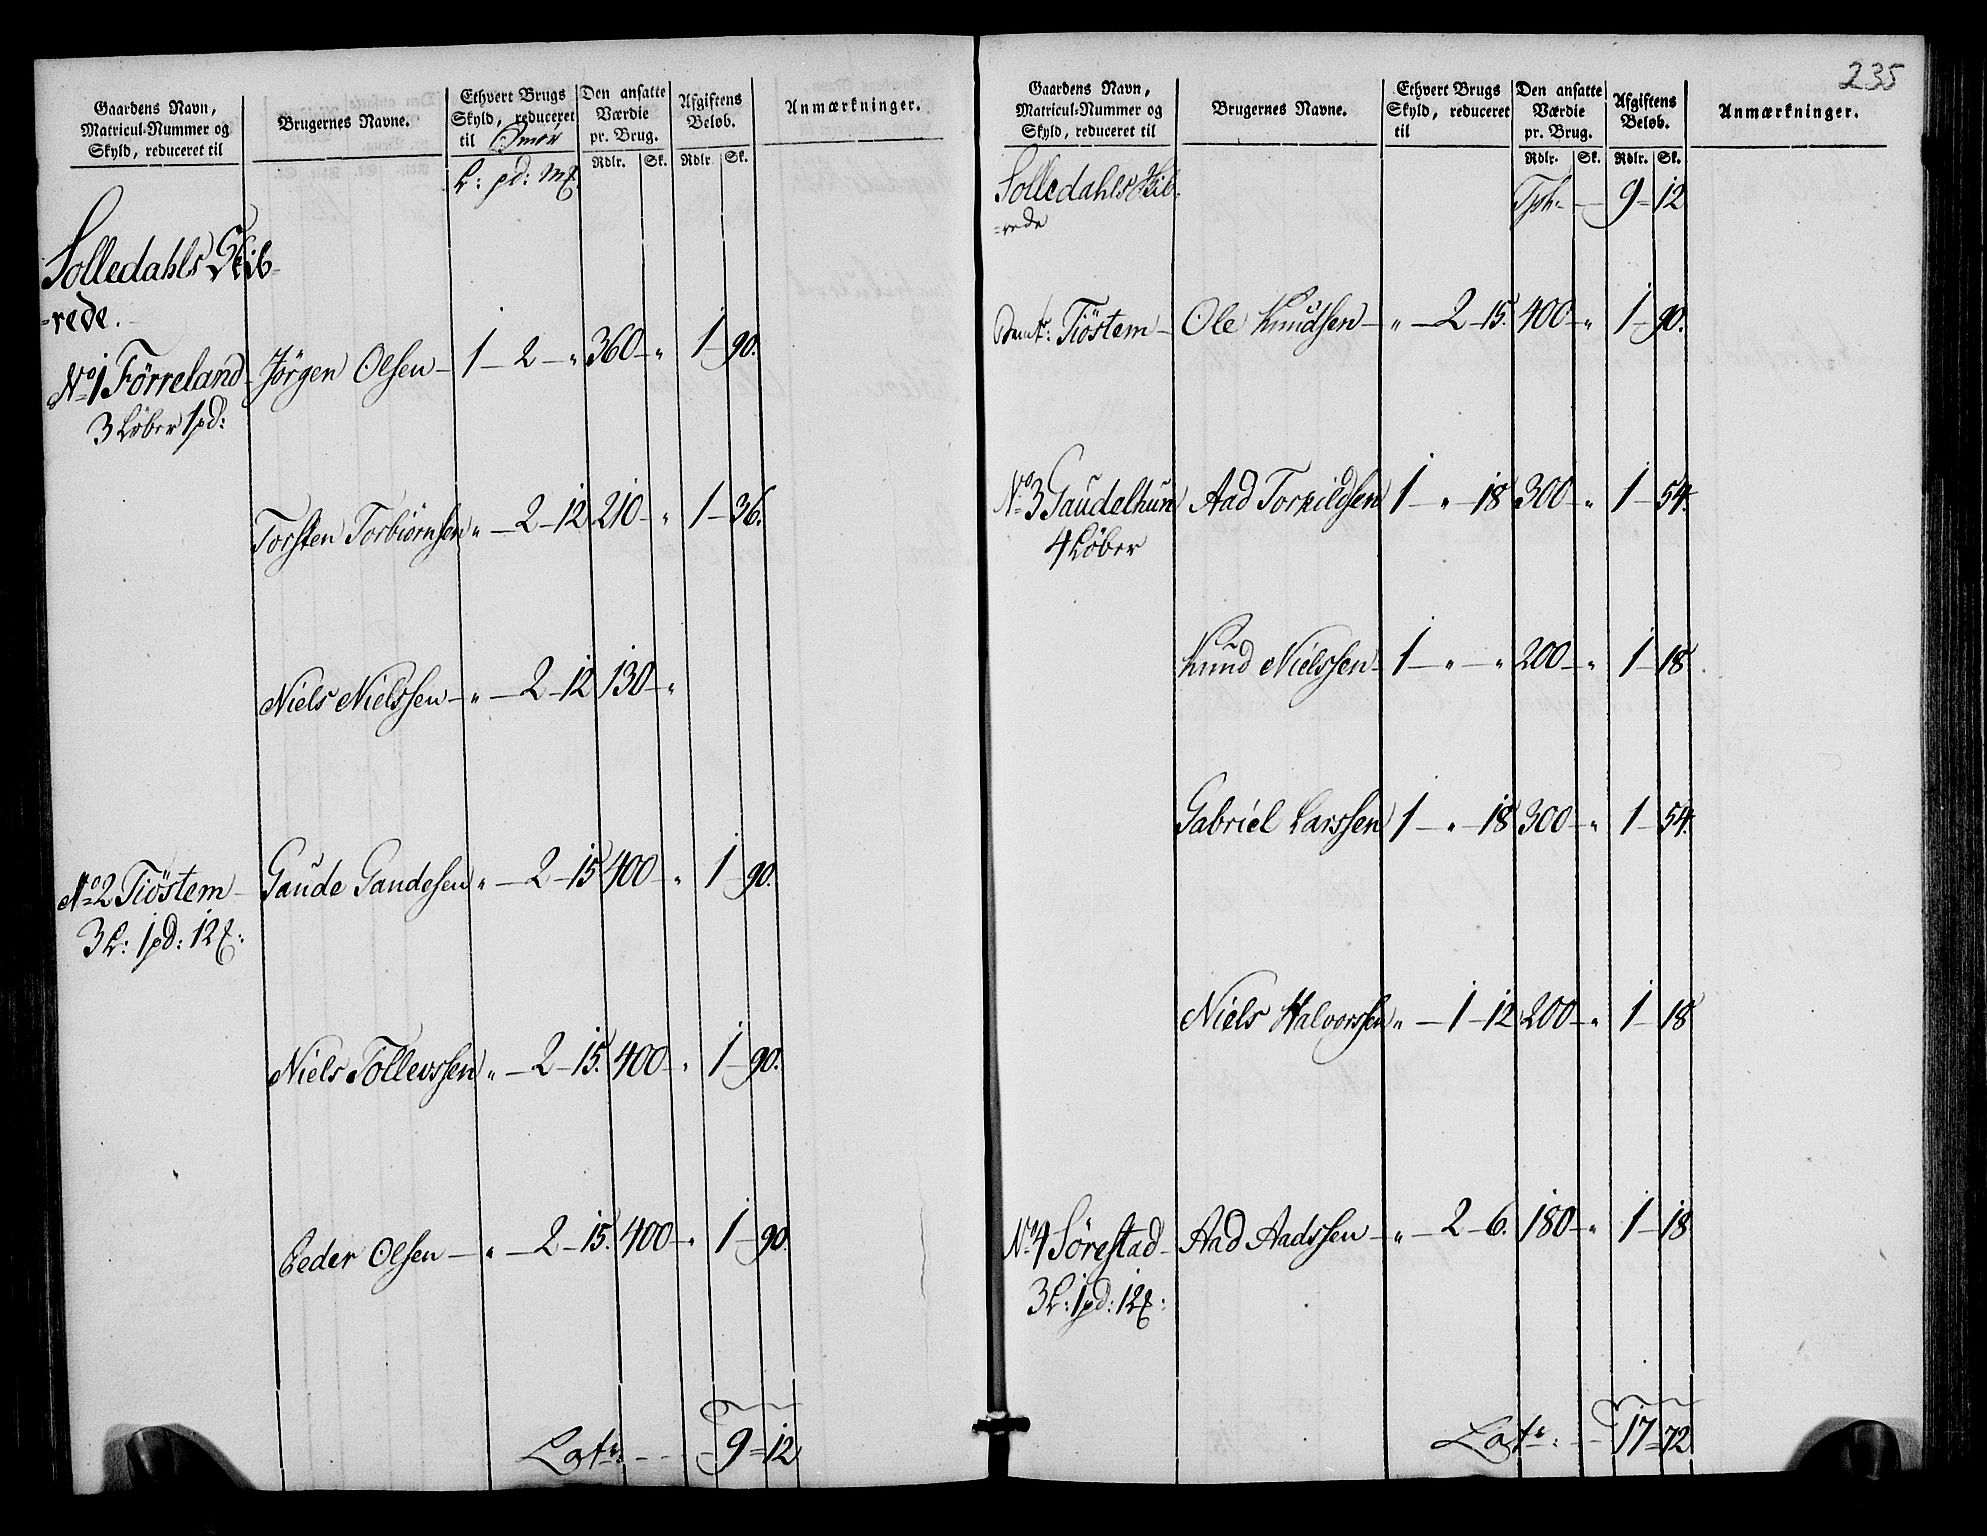 Gaardens Navn, Matricul-Nummer og Skyld, reduceret til
Brugernes Navne.
Ethvert Brugs Skyld, reduceret til Smör
Den ansatte Værdie pr. Brug.
Afgiftens Beløb.
Anmærkninger.
Rdlr. Sk. Rdlr. Sk.
L: pd: M
Solledahls Skib-
-rede.
No 1 Förreland Jørgen Olsen 1 – 2 – „ 360 – „ 1 – 90.
3 Løber 1 pd:
Torsten Torbiörnsen „ – 2 – 12 210 – „ 1 – 36.
Niels Nielssen „ – 2 – 12 130 – „
No 2 Tiöstem Gaude Gaudesen „ – 2 – 15 400 – „ 1 – 90.
3 L: 1 pd: 12
Niels Tollevssen „ – 2 – 15. 400 – „ 1 – 90.
Peder Olsen „ – 2 – 15. 400 – „ 1 – 90.
Lat: 9 = 12
235
Gaardens Navn, Matricul-Nummer og Skyld, reduceret til
Brugernes Navne.
Ethvert Brugs Skyld, reduceret til
Den ansatte Værdie pr. Brug.
Afgiftens Beløb.
Anmærkninger.
Rdlr. Sk. Rdlr. Sk.
Solledahls Skib- Tpt. 9 = 12
-rede
Tiöstem Ole Knudsen „ – 2 – 15. 400 – „ 1 – 90.
No 3 Gaudelhun Aad Torkildsen 1 – „ – 18 300 – „ 1 – 54.
4 Løber
Knud Nielssen 1 – „ – „ 200 – „ 1 – 18
Gabriel Larssen 1 – „ – 18 300 – „ 1 – 54.
Niels Halvorssen „ – 1 – 12 200 – „ 1 – 18
No 4 Sörestad Aad Aadssen „ – 2 – 6. 180 – „ 1 – 18
3 L: 1 pd: 12
Lat: 17 = 72